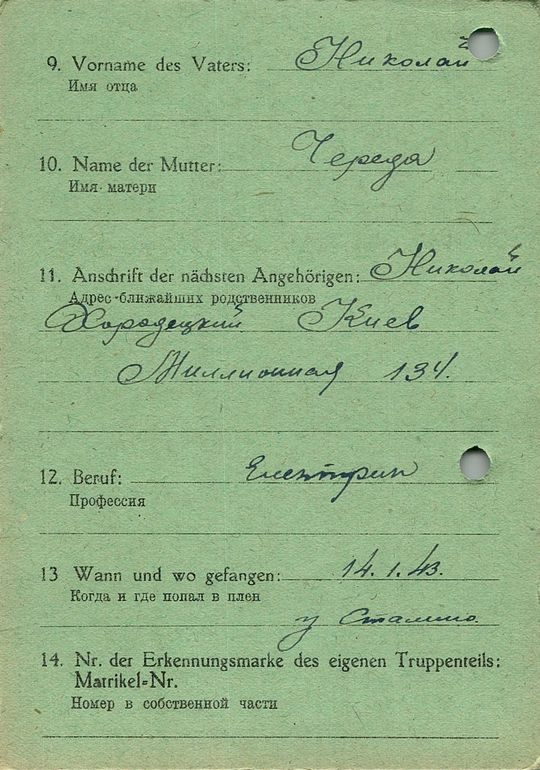 9. Vorname des Vaters: Николай
Имя отца
10. Name der Mutter: Череда
Имя матери
11. Anschrift der nächsten Angehörigen: Николай
Адрес ближайших родственников
Хородецкий Киев
Миллионная 134.
12. Beruf: Електрик
Профессия
13 Wann und wo gefangen: 14.1.43.
Когда и где попал в плен
у Сталино.
14. Nr. der Erkennungsmarke des eigenen Truppenteils:
Matrikel-Nr.
Номер в собственной части